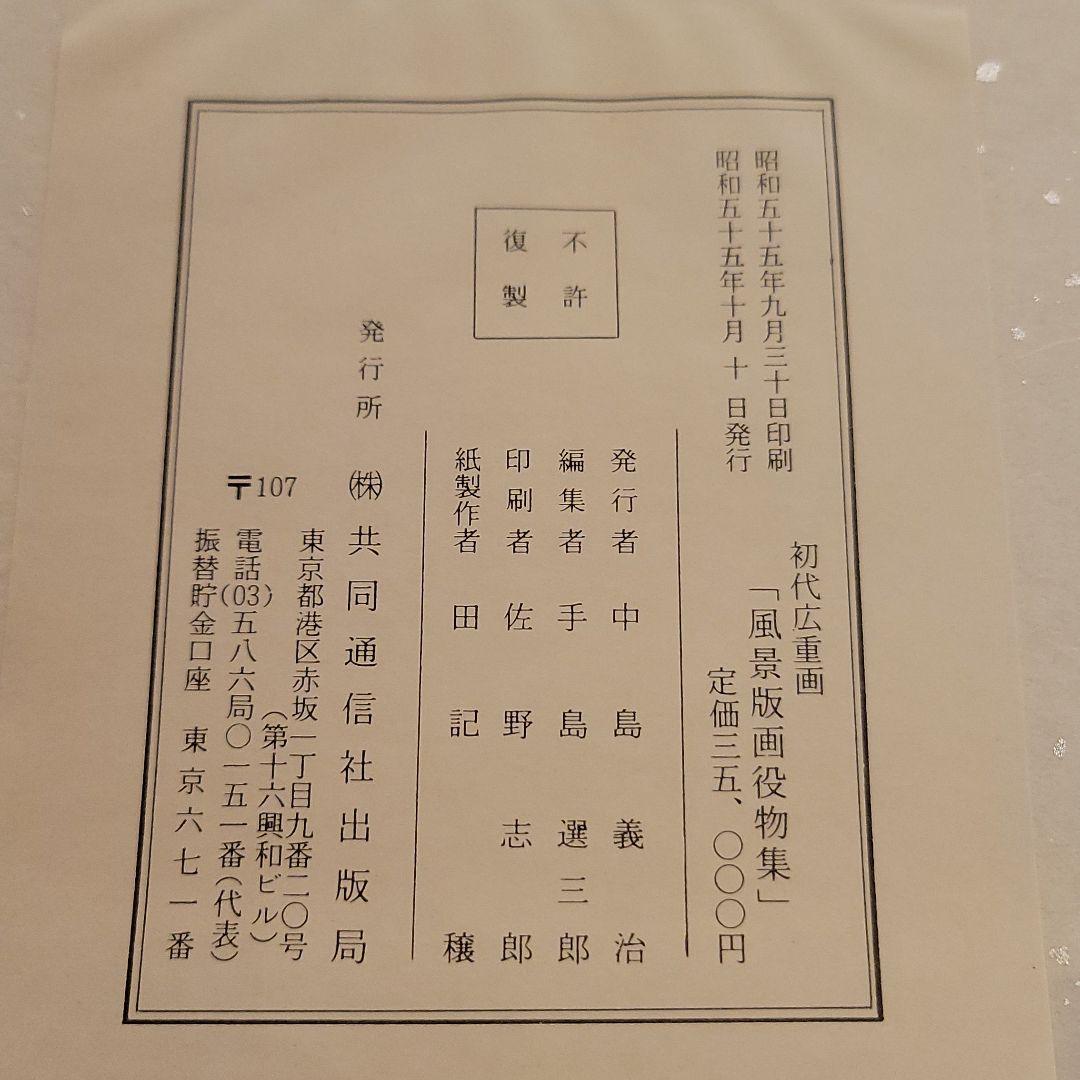 昭和五十五年九月三十日印刷
昭和五十五年十月 十 日発行
初代広重画
「風景版画役物集」
定価三五、〇〇〇円
不許
復製
発行者 中島義治
編集者 手島選三郎
印刷者 佐野志郎
紙製作者 田記穣
発行所 ㈱共同通信社出版局
東京都港区赤坂一丁目九番二〇号
(第十六興和ビル)
〒107 電話(03)五八六局〇一五一番(代表)
振替貯金口座 東京六七一番